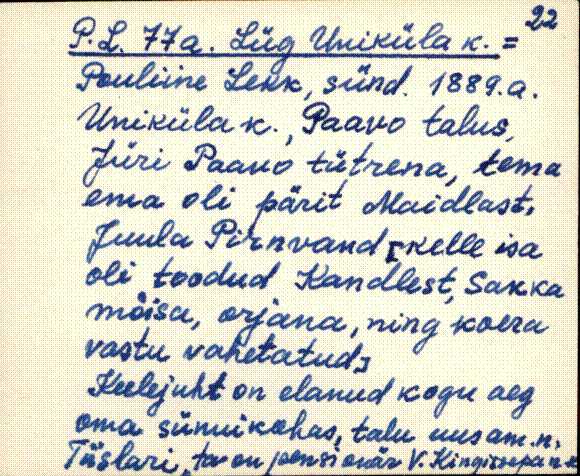 22
P.L. 77a. Lüg Uniküla k. =
Pouliine Lekk, sünd. 1889.a.
Uniküla k., Paavo talus,
Jüri Paavo tütrena, tema
ema oli pärit Maidlast,
Juula Pirnvand [kelle isa
oli toodud Kandlest, Sakka
mõisa, orjana, ning koera
vastu vahetatud]
Keelejuht on elanud kogu aeg
oma sünnikohas, talu uus am.n.
Tiislari, ta on pensionär V. Kingissepa n.